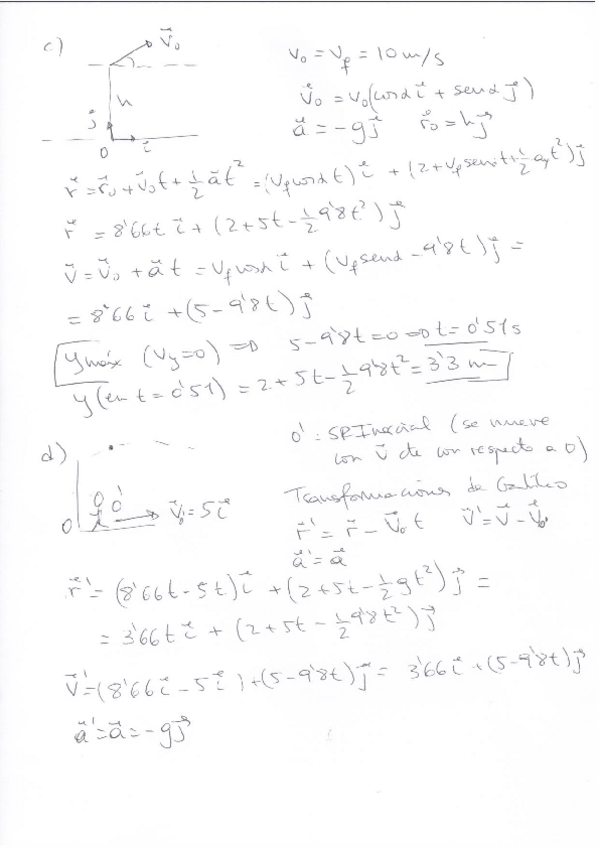 c) v⃗₀ v₀ = v_f = 10 m/s
h v⃗₀ = v₀(cosα i⃗ + senα j⃗)
j⃗ a⃗ = -g j⃗ r⃗₀ = h j⃗
0 i⃗
r⃗ = r⃗₀ + v⃗₀t + ½ a⃗t² = (v_f cosα t) i⃗ + (2 + v_f senα t + ½ a_y t²) j⃗
r⃗ = 8'66t i⃗ + (2 + 5t - ½ 9'8t²) j⃗
v⃗ = v⃗₀ + a⃗ t = v_f cosα i⃗ + (v_f senα - 9'8t) j⃗ =
= 8'66 i⃗ + (5 - 9'8t) j⃗
y_máx (v_y=0) ⇒ 5 - 9'8t = 0 ⇒ t = 0'51s
y (en t = 0'51) = 2 + 5t - ½ 9'8t² = 3'3 m
d) 0' : SR Inercial (se mueve
con v⃗ cte con respecto a 0)
0 0' v⃗₀' = 5 i⃗ Transformaciones de Galileo
r⃗' = r⃗ - v⃗₀' t v⃗' = v⃗ - v⃗₀'
a⃗' = a⃗
r⃗' = (8'66t - 5t) i⃗ + (2 + 5t - ½ gt²) j⃗ =
= 3'66t i⃗ + (2 + 5t - ½ 9'8t²) j⃗
v⃗' = (8'66 i⃗ - 5 i⃗) + (5 - 9'8t) j⃗ = 3'66 i⃗ + (5 - 9'8t) j⃗
a⃗' = a⃗ = -g j⃗